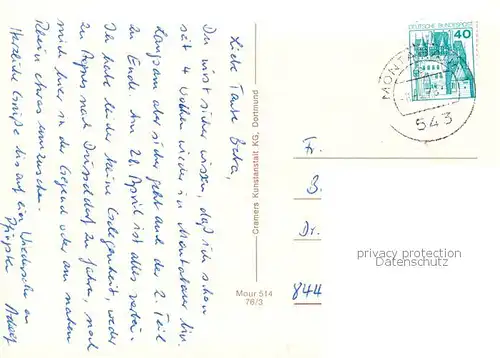 Liebe Tante Berta,
Du wirst sicher wissen, daß ich schon
seit 4 Wochen wieder in Montabaur bin.
Langsam aber sicher geht auch der 2. Teil
zu Ende. Am 28. April ist alles vorbei.
Ich habe leider keine Gelegenheit, weder
zu Papas nach Düsseldorf zu fahren, noch
mich hier in der Gegend oder am nahen
Rhein etwas umzusehen.
Herzliche Grüße bis auf ein Wiedersehn an
Pfingsten
Cramers Kunstanstalt KG, Dortmund
Mour 514
76/3
DEUTSCHE BUNDESPOST
40
MONTABAUR
543
Fr.
B.
Dr.
844
privacy protection
Datenschutz